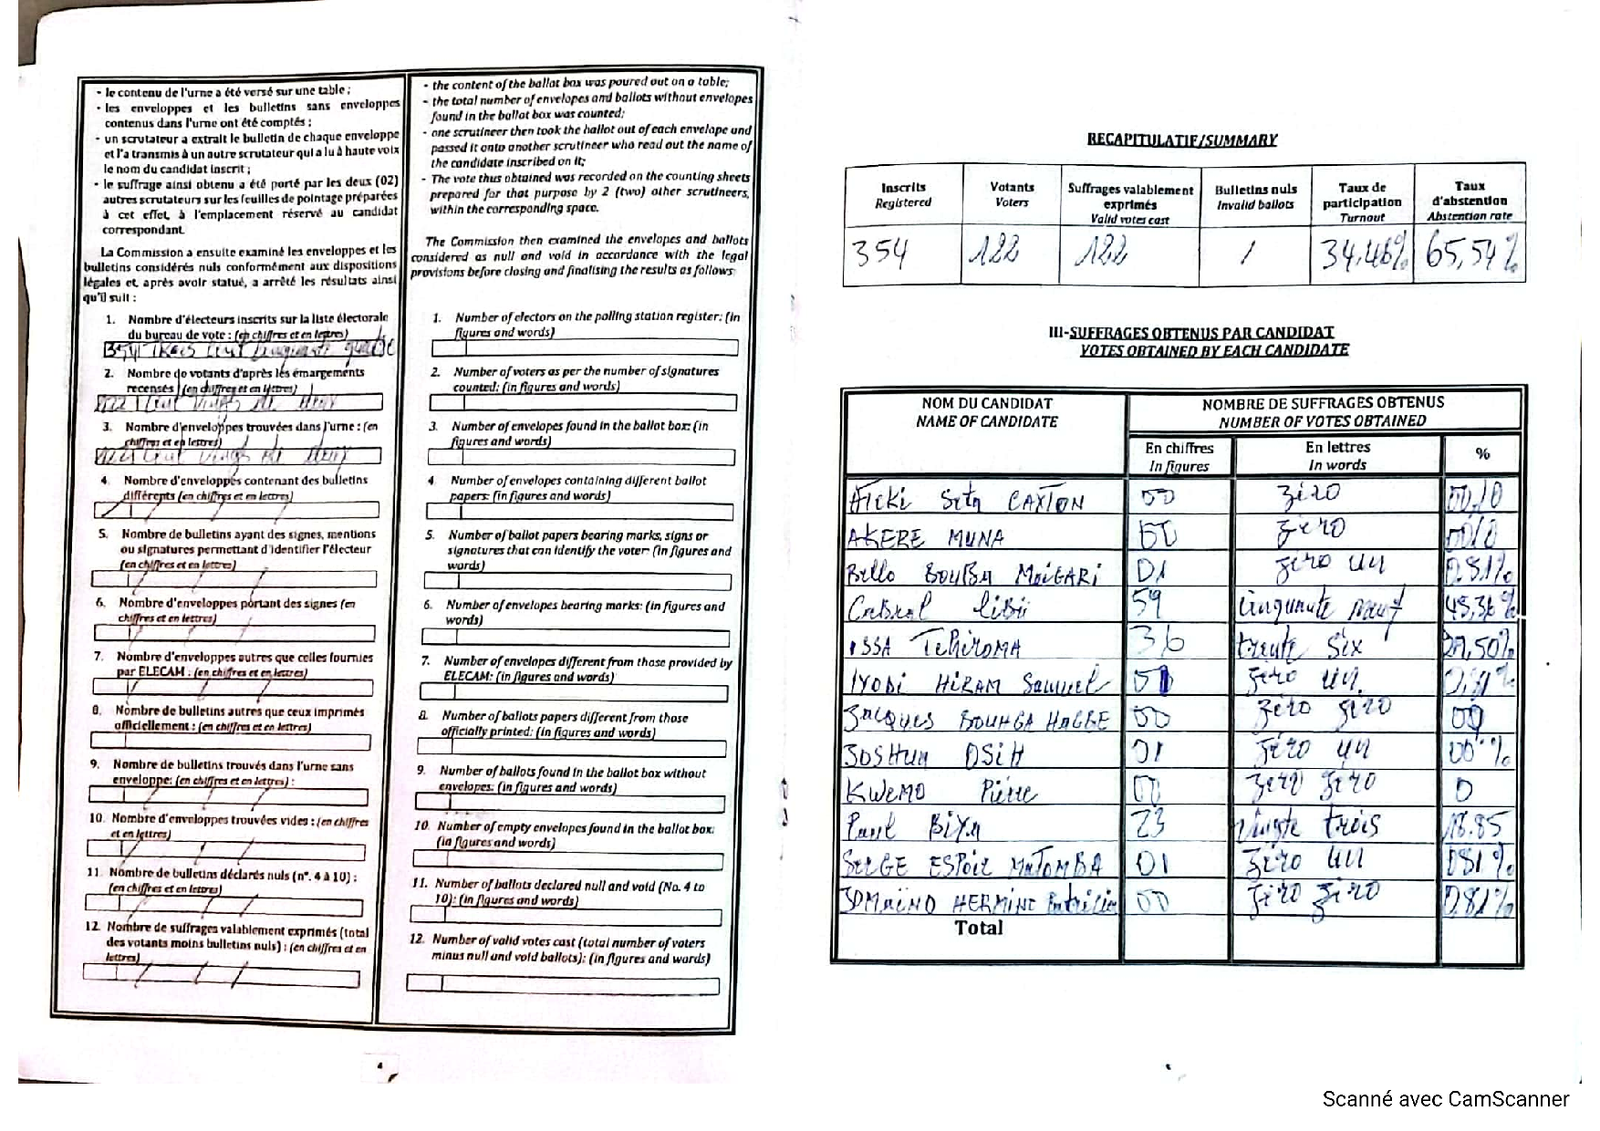 - le contenu de l'urne a été versé sur une table ;
- les enveloppes et les bulletins sans enveloppes
contenus dans l'urne ont été comptés ;
- un scrutateur a extrait le bulletin de chaque enveloppe
et l'a transmis à un autre scrutateur qui a lu à haute voix
le nom du candidat inscrit ;
- le suffrage ainsi obtenu a été porté par les deux (02)
autres scrutateurs sur les feuilles de pointage préparées
à cet effet, à l'emplacement réservé au candidat
correspondant.
La Commission a ensuite examiné les enveloppes et les
bulletins considérés nuls conformément aux dispositions
légales et, après avoir statué, a arrêté les résultats ainsi
qu'il suit :
1. Nombre d'électeurs inscrits sur la liste électorale
du bureau de vote : (en chiffres et en lettres)
354 trois cent cinquante quatre
2. Nombre de votants d'après les émargements
recensés (en chiffres et en lettres)
122 cent vingt de deux
3. Nombre d'enveloppes trouvées dans l'urne : (en
chiffres et en lettres)
122 cent vingt de deux
4. Nombre d'enveloppes contenant des bulletins
différents (en chiffres et en lettres)
/ / /
5. Nombre de bulletins ayant des signes, mentions
ou signatures permettant d'identifier l'électeur
(en chiffres et en lettres)
/ / /
6. Nombre d'enveloppes portant des signes (en
chiffres et en lettres)
/ / /
7. Nombre d'enveloppes autres que celles fournies
par ELECAM : (en chiffres et en lettres)
/ / /
8. Nombre de bulletins autres que ceux imprimés
officiellement : (en chiffres et en lettres)
9. Nombre de bulletins trouvés dans l'urne sans
enveloppe: (en chiffres et en lettres) :
/ / /
10. Nombre d'enveloppes trouvées vides : (en chiffres
et en lettres)
/ / /
11. Nombre de bulletins déclarés nuls (n°. 4 à 10) :
(en chiffres et en lettres)
/ / /
12. Nombre de suffrages valablement exprimés (total
des votants moins bulletins nuls) : (en chiffres et en
lettres)
/ / /
- the content of the ballot box was poured out on a table;
- the total number of envelopes and ballots without envelopes
found in the ballot box was counted;
- one scrutineer then took the ballot out of each envelope and
passed it onto another scrutineer who read out the name of
the candidate inscribed on it;
- The vote thus obtained was recorded on the counting sheets
prepared for that purpose by 2 (two) other scrutineers,
within the corresponding space.
The Commission then examined the envelopes and ballots
considered as null and void in accordance with the legal
provisions before closing and finalising the results as follows:
1. Number of electors on the polling station register: (in
figures and words)
2. Number of voters as per the number of signatures
counted: (in figures and words)
3. Number of envelopes found in the ballot box: (in
figures and words)
4 Number of envelopes containing different ballot
papers: (in figures and words)
5. Number of ballot papers bearing marks, signs or
signatures that can identify the voter: (in figures and
words)
6. Number of envelopes bearing marks: (in figures and
words)
7. Number of envelopes different from those provided by
ELECAM: (in figures and words)
8. Number of ballots papers different from those
officially printed: (in figures and words)
9. Number of ballots found in the ballot box without
envelopes: (in figures and words)
10. Number of empty envelopes found in the ballot box:
(in figures and words)
11. Number of ballots declared null and void (No. 4 to
10): (in figures and words)
12. Number of valid votes cast (total number of voters
minus null and void ballots): (in figures and words)
RECAPITULATIF/SUMMARY
Inscrits Registered Votants Voters Suffrages valablement exprimés Valid votes cast Bulletins nuls Invalid ballots Taux de participation Turnout Taux d'abstention Abstention rate
354 122 122 / 34,46% 65,54%
III-SUFFRAGES OBTENUS PAR CANDIDAT
VOTES OBTAINED BY EACH CANDIDATE
NOM DU CANDIDAT NAME OF CANDIDATE
NOMBRE DE SUFFRAGES OBTENUS
NUMBER OF VOTES OBTAINED
En chiffres In figures En lettres In words %
Ateki Seta CAXTON 00 zéro 00,10
AKERE MUNA 00 zéro 00/0
Bello BOUBA MAIGARI 01 zéro un 0.81%
Cabral Libii 59 cinquante neuf 48,36%
ISSA TCHIROMA 36 trente six 29,50%
IYODI HIRAM Samuel 01 zéro un 0,81%
Jacques BOUHGA HAGBE 00 zéro zéro 00
JOSHUA OSIH 01 zéro un 00 %
KWEMO Pierre 00 zéro zéro 0
Paul BIYA 23 vingte trois 18.85
SERGE ESPOIR MATOMBA 01 zéro un 081%
TOMAINO HERMINE Patricia 00 zéro zéro 0.81%
Total
Scanné avec CamScanner